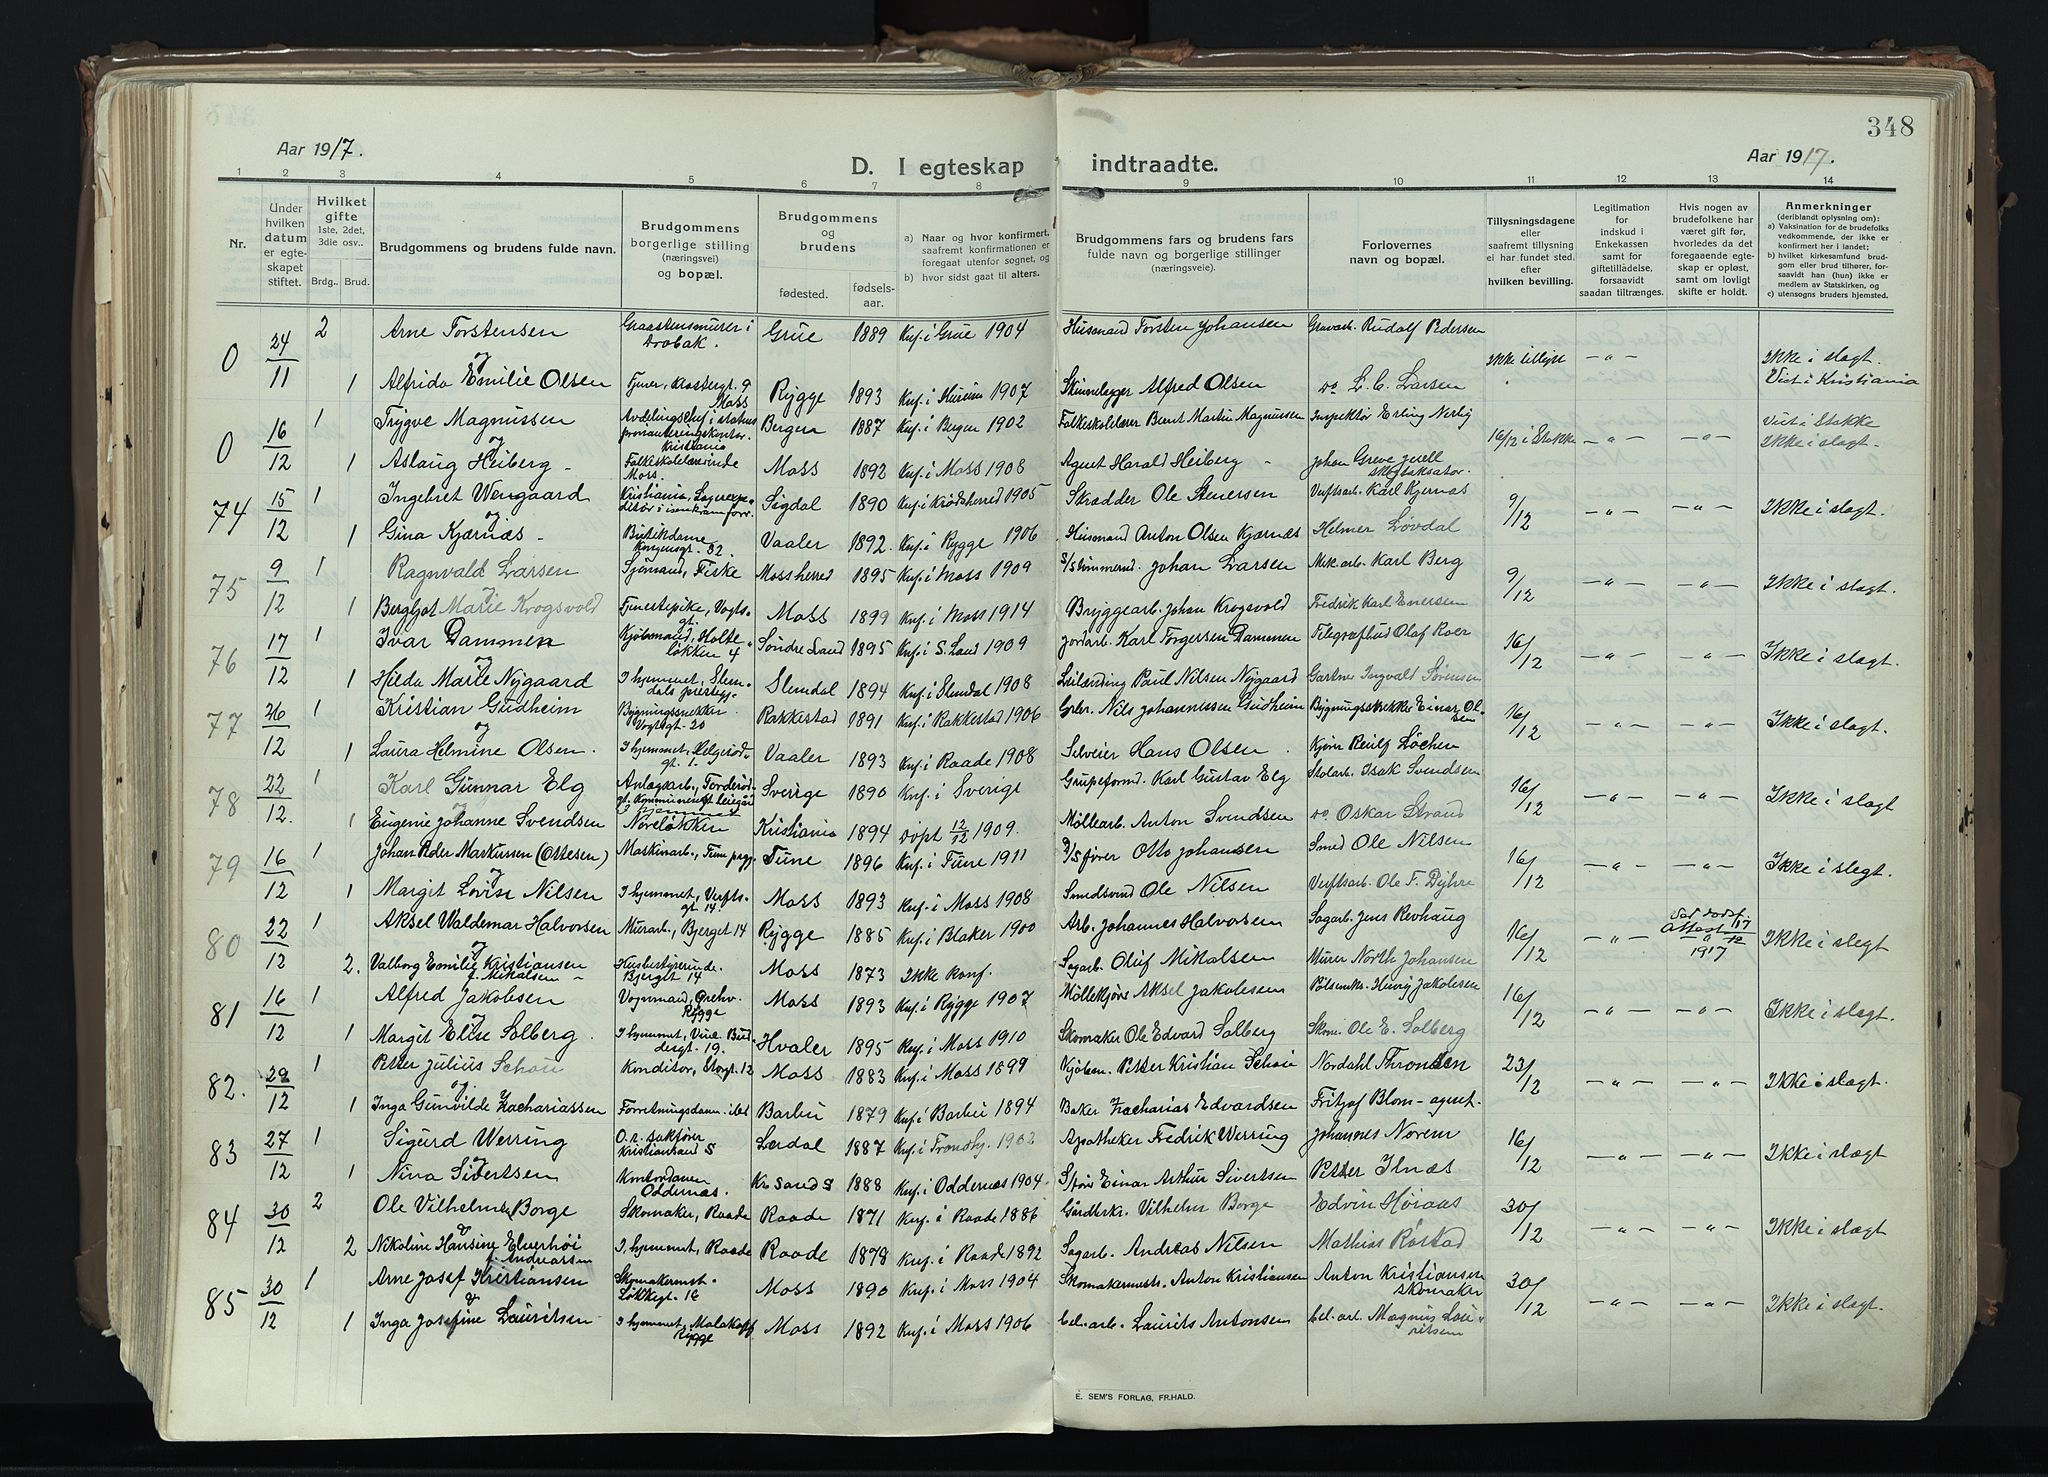 348
Aar 1917.
D. I egteskap indtraadte.
Aar 1917.
1 2 3 4 5 6 7 8 9 10 11 12 13 14
Nr.
Under hvilken datum er egteskapet stiftet.
Hvilket gifte 1ste, 2det, 3die osv..
Brdg.. Brud.
Brudgommens og brudens fulde navn.
Brudgommens borgerlige stilling (næringsvei) og bopæl.
Brudgommens og brudens
fødested. fødselsaar.
a) Naar og hvor konfirmert, saafremt konfirmationen er foregaat utenfor sognet, og
b) hvor sidst gaat til alters.
Brudgommens fars og brudens fars fulde navn og borgerlige stillinger (næringsveie).
Forlovernes navn og bopæl.
Tillysningsdagene eller saafremt tillysning ei har fundet sted. efter hvilken bevilling.
Legitimation for indskud i Enkekassen samt for giftetilladelse, forsaavidt saadan tiltrænges.
Hvis nogen av brudefolkene har været gift før, hvorledes da det foregaaende egteskap er opløst, samt om lovligt skifte er holdt.
Anmerkninger (deriblandt oplysning om): a) Vaksination for de brudefolks vedkommende, der ikke er konfirmert her i landet; b) hvilket kirkesamfund brudgom eller brud tilhører, forsaavidt han (hun) ikke er medlem av Statskirken, og c) utensogns bruders hjemsted.
0 24/11 2 Arne Torstensen Graastensmurer i Drøbak. Grue 1889 Knf. i Grue 1904 Husmand Torsten Johansen Gravarb. Rudolf Pedersen Ikke tillyst — " — Ikke i slagt.
og
1 Alfrida Emilie Olsen Tjener, Klostergt. 9 Moss Rygge 1893 Knf. i 1907 Alfred Olsen do L. C. Larsen Viet i Kristiania
0 16/12 1 Trygve Magnussen Avdelingschef i statens provianteringskontor. Kristiania Bergen 1887 Knf. i Bergen 1902 Folkeskolelærer Bernt Martin Magnussen Inspektør Erling Nerby 16/12 i Stokke — " — — " — Viet i Stokke Ikke i slagt.
og
1 Aslaug Heiberg - Folkeskolelærerinde Moss. Moss 1892 Knf. i Moss 1908 Agent Harald Heiberg - Johan Greve Juell skogtaksator.
74 15/12 1 Ingebret Wengaard Kristiania, Lagerexpeditør i isenkramforr. Sigdal 1890 Knf. i Krødsherred 1905 Skrædder Ole Stenersen Verftsarb. Karl Kjernæs 9/12 — " — — " — Ikke i slagt.
og
1 Gina Kjærnæs - Butikdame Kongensgt. 32. Vaaler 1892. Knf. i Rygge 1906 Husmand Anton Olsen Kjærnæs Helmer Løvdal
75 9/12 1 Ragnvald Larsen Sjømand, Fiske Mossherred 1895 Knf. i Moss 1909 Johan Larsen Mek. arb. Karl Berg 9/12 — " — — " — Ikke i slagt.
og
1 Bergljot Marie Krogsvold Tjenestepike, Vogtsgt. Moss 1899 Knf. i Moss 1914 Bryggearb. Johan Krogsvold Fredrik Karl Enersen
76 17/12 1 Ivar Dammen Kjøbmand, Holteløkken 4 Søndre Land 1895 Knf. i S. Land 1909 Jordarb. Karl Torgersen Dammen Telegrafbud Olaf Roer 16/12 — " — — " — Ikke i slagt.
og
1 Hilda Marie Nygaard I hjemmet, Slemdals prestegj. Slemdal 1894 Knf. i Slemdal 1908 Leilænding Paul Nilsen Nygaard Gartner Ingvald Sørensen
77 26/12 1 Kristian Gudheim Bygningssnekker Vogtsgt. 20 Rakkestad 1891 Knf. i Rakkestad 1906 Grbr. Nils Johannessen Gudheim Bygningssnekker Einar Olsen 16/12 — " — — " — Ikke i slagt.
og
1 Laura Helmine Olsen. I hjemmet, Helgerødgt. 1. Vaaler 1893 Knf. i Raade 1908 Selveier Hans Olsen. Kjører Løchen
78 22/12. 1 Karl Gunnar Elg Anlægsarb., Sverige 1890 Knf. i Sverige Grubeformd. Karl Gustav Elg Stolarb. Isak Svendsen 16/12 — " — — " — Ikke i slagt
og
1 Eugenie Johanne Svendsen I hjemmet Noreløkken Kristiania 1894 Døpt 12/12 1909. Møllearb. Anton Svendsen do Oskar Strand
79 16/12 1 Johan Peder Markussen (Ottesen) Maskinarb., Tune prgj. Tune 1896 Knf. i Tune 1911 Otto Johansen Smed Ole Nilsen 16/12 — " — — " — Ikke i slegt.
og
1 Margit Lovise Nilsen I hjemmet, Verftsgt. 14. Moss 1893 Knf. i Moss 1908 Smedsvend Ole Nilsen Verftsarb. Ole F. Dyhre
80 22/12 1 Aksel Waldemar Halvorsen Murarb., Bjerget 14 Rygge 1885 Knf. i Blaker 1900 Arb. Johannes Halvorsen Sagarb. Jens Revhaug 16/12 — " — Attest 17/12 1917 Ikke i slegt
og
2. Valborg Emilie Kristiansen f. Mikalsen - Husbestyrerinde. Bjerget 14 Moss 1873 Ikke konf. Sagarb. Oluf Mikalsen Murer North Johansen
81 16/12 1 Alfred Jakobsen Vognmand, Rygge Moss 1893 Knf. i Rygge 1907 Møllekjører Aksel Jakobsen Pølsemk. Henry Jakobsen 16/12 — " — — " — Ikke i slagt.
og
1 Margit Elise Solberg. I hjemmet, 19. Hvaler 1895 Knf. i Moss 1910 Skomaker Ole Edvard Solberg Skom. Ole E. Solberg
82. 29/12 1 Petter Julius Schou Konditor, Storgt. 12 Moss 1883 Knf. i Moss 1899 Kjøbm. Petter Kristian Schou Nordahl Thronsen 23/12 — " — — " — Ikke i slagt.
og.
1 Inga Gunvilde Zachariassen Forretningsdame, ibid Barbu 1879 Knf. i Barbu 1894 Baker Zacharias Edvardsen Fritjof Blom - agent.
83 27/12 1 Sigurd Werring O.r. sakfører Kristiansand S Lærdal 1887 Knf. i Trondhj. 1902 Apotheker Fredrik Werring Johannes Norem 16/12 — " — — " — Ikke i slægt
og
1 Nina Sivertsen Kontordame Oddernæs. Kr. Sand S 1888 Knf. i Oddernæs 1904 Einar Arthur Sivertsen Petter Ilnæs
84 30/12 2 Ole Vilhelmsen Borge Skomaker, Raade Raade 1871 Knf. i Raade 1886 Vilhelm Borge Edvin Høiaas 30/12 — " — — " — Ikke i slægt
og
2 Nikoline Hansine Elverhøi f. Andreassen I hjemmet, Raade Raade 1878 Knf. i Raade 1892 Sagarb. Andreas Nilsen Mathias Røstad
85 30/12 1 Arne Josef Kristiansen Skomakermst. Løkkegt. 16 Moss 1890 Knf. i Moss 1904 Skomakermestr. Anton Kristiansen Anton Kristiansen skomaker 30/12 — " — — " — Ikke i slagt.
og
1 Inga Josefine Lauritsen - I hjemmet, Malakoff Rygge Moss 1892 Knf. i Moss 1906 Cel. arb. Laurits Antonsen Cel. arb. Magnus Lauritsen
E. SEM'S FORLAG, FR.HALD.